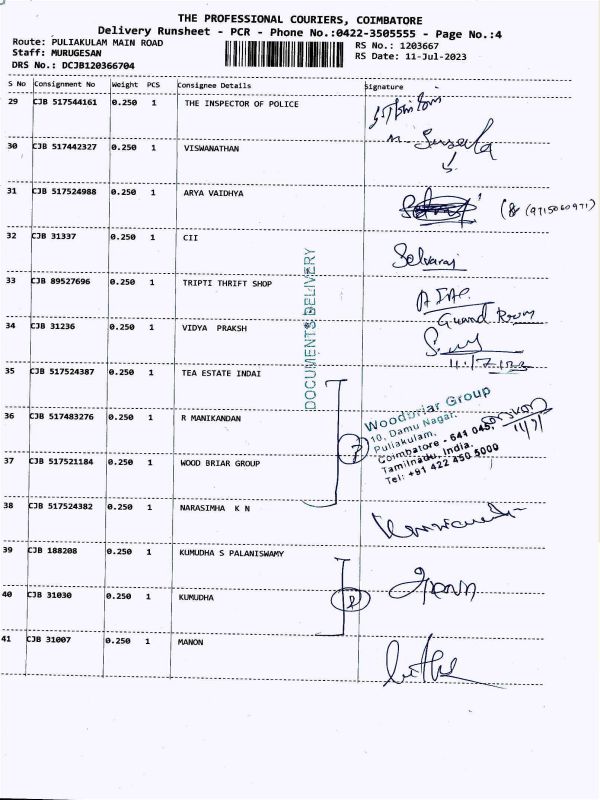 THE PROFESSIONAL COURIERS, COIMBATORE
Delivery Runsheet - PCR - Phone No.:0422-3505555 - Page No.:4
Route: PULIAKULAM MAIN ROAD
Staff: MURUGESAN
DRS No.: DCJB120366704
RS No.: 1203667
RS Date: 11-Jul-2023
S No Consignment No Weight PCS Consignee Details Signature
29 CJB 517544161 0.250 1 THE INSPECTOR OF POLICE
30 CJB 517442327 0.250 1 VISWANATHAN
31 CJB 517524988 0.250 1 ARYA VAIDHYA (9715060971)
32 CJB 31337 0.250 1 CII Selvaraj
33 CJB 89527696 0.250 1 TRIPTI THRIFT SHOP
Guand Room
34 CJB 31236 0.250 1 VIDYA PRAKSH
35 CJB 517524387 0.250 1 TEA ESTATE INDAI
36 CJB 517483276 0.250 1 R MANIKANDAN
37 CJB 517521184 0.250 1 WOOD BRIAR GROUP
38 CJB 517524382 0.250 1 NARASIMHA K N
39 CJB 188208 0.250 1 KUMUDHA S PALANISWAMY
40 CJB 31030 0.250 1 KUMUDHA
41 CJB 31007 0.250 1 MANON
DOCUMENTS DELIVERY
Woodbriar Group
10, Damu Nagar,
Puliakulam,
Coimbatore - 641 045.
Tamilnadu, India.
Tel: +91 422 450 5000